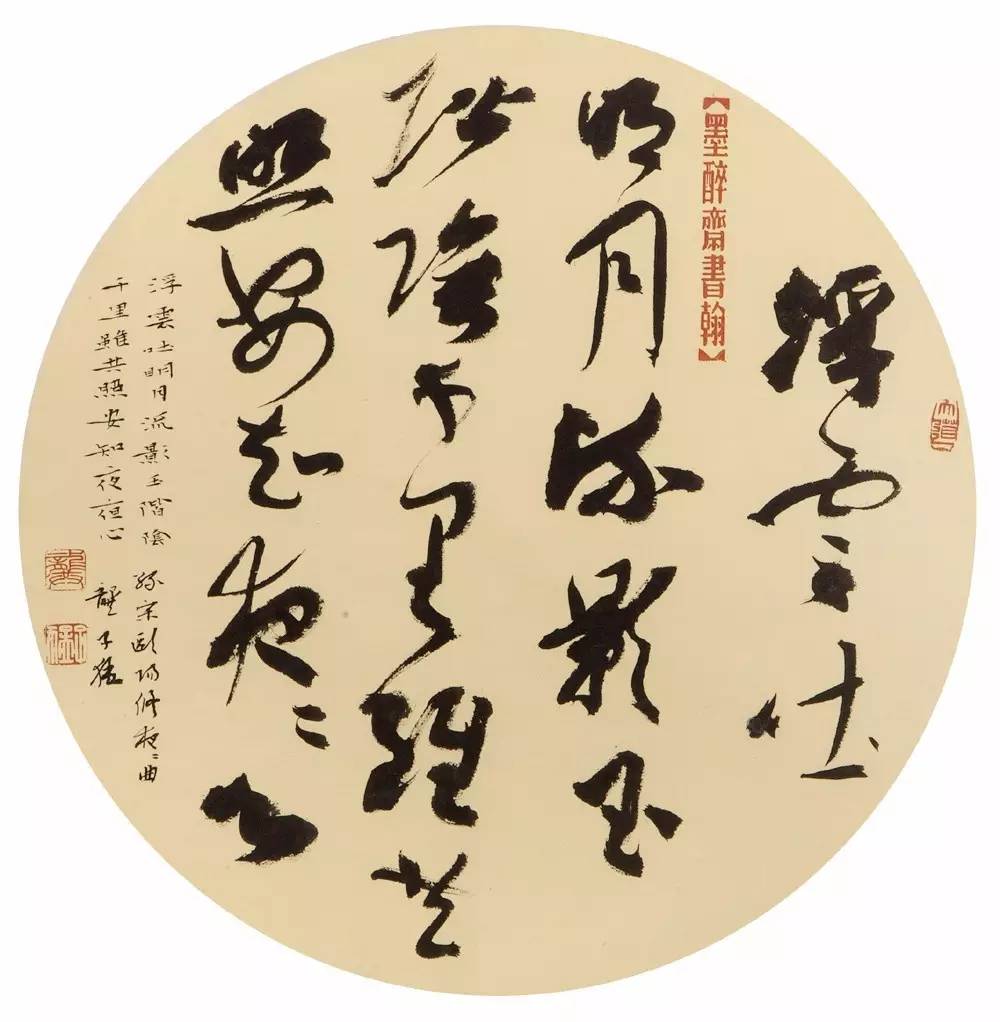 浮雲吐
【墨醉齋書翰】
明月流影玉
階陰千里雖共
照安知夜〻心
浮雲吐明月流影玉階陰 錄宋歐陽修夜〻曲
千里雖共照安知夜夜心 龔子猛